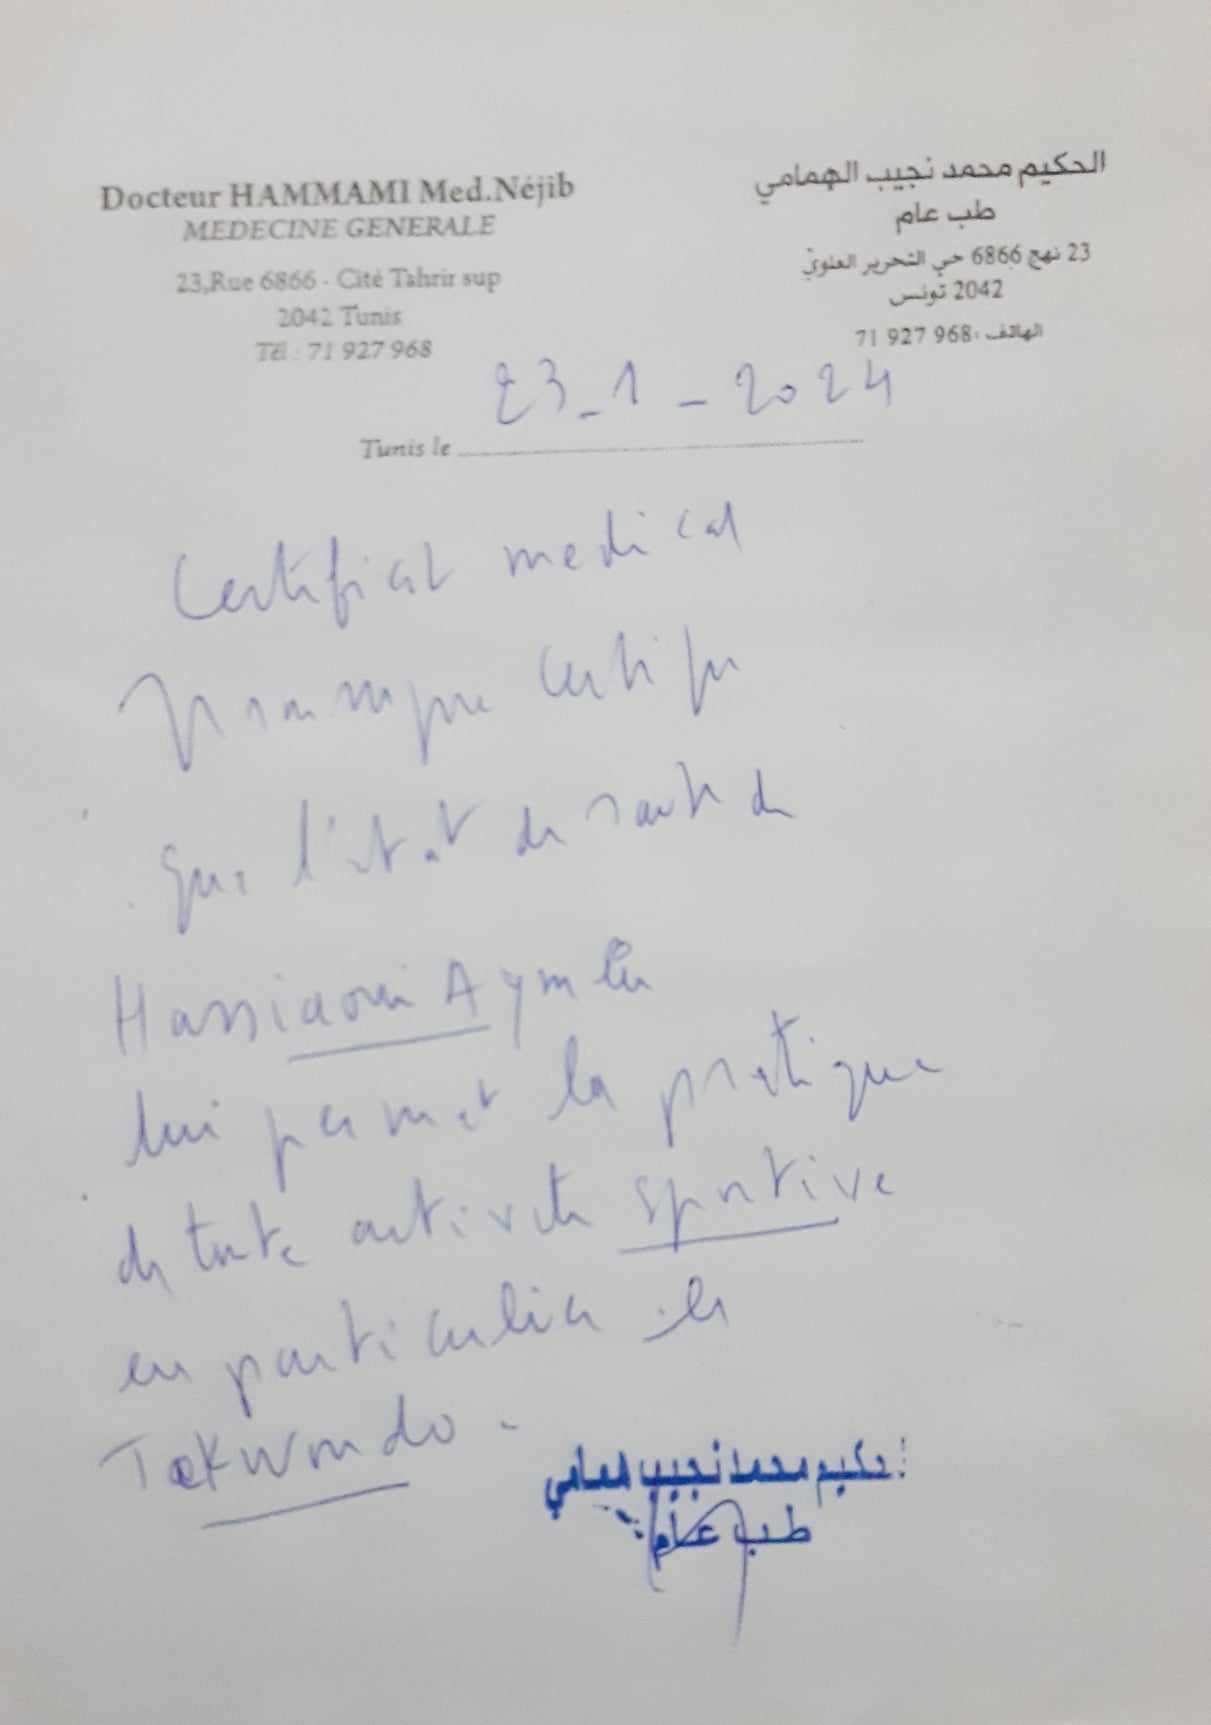 Docteur HAMMAMI Med.Néjib
MEDECINE GENERALE
23,Rue 6866 - Cité Tahrir sup
2042 Tunis
Tél : 71 927 968
الحكيم محمد نجيب الهمامي
طب عام
23 نهج 6866 حي التحرير العلوي
2042 تونس
الهاتف : 968 927 71
23_1_2024
Tunis le
Certificat medical
certifie
que l'état de santé de
Hassiaoui Aymen
lui permet la pratique
de toute activité sportive
en particulier le
Taekwondo.
حكيم محمد نجيب همامي
طب عام